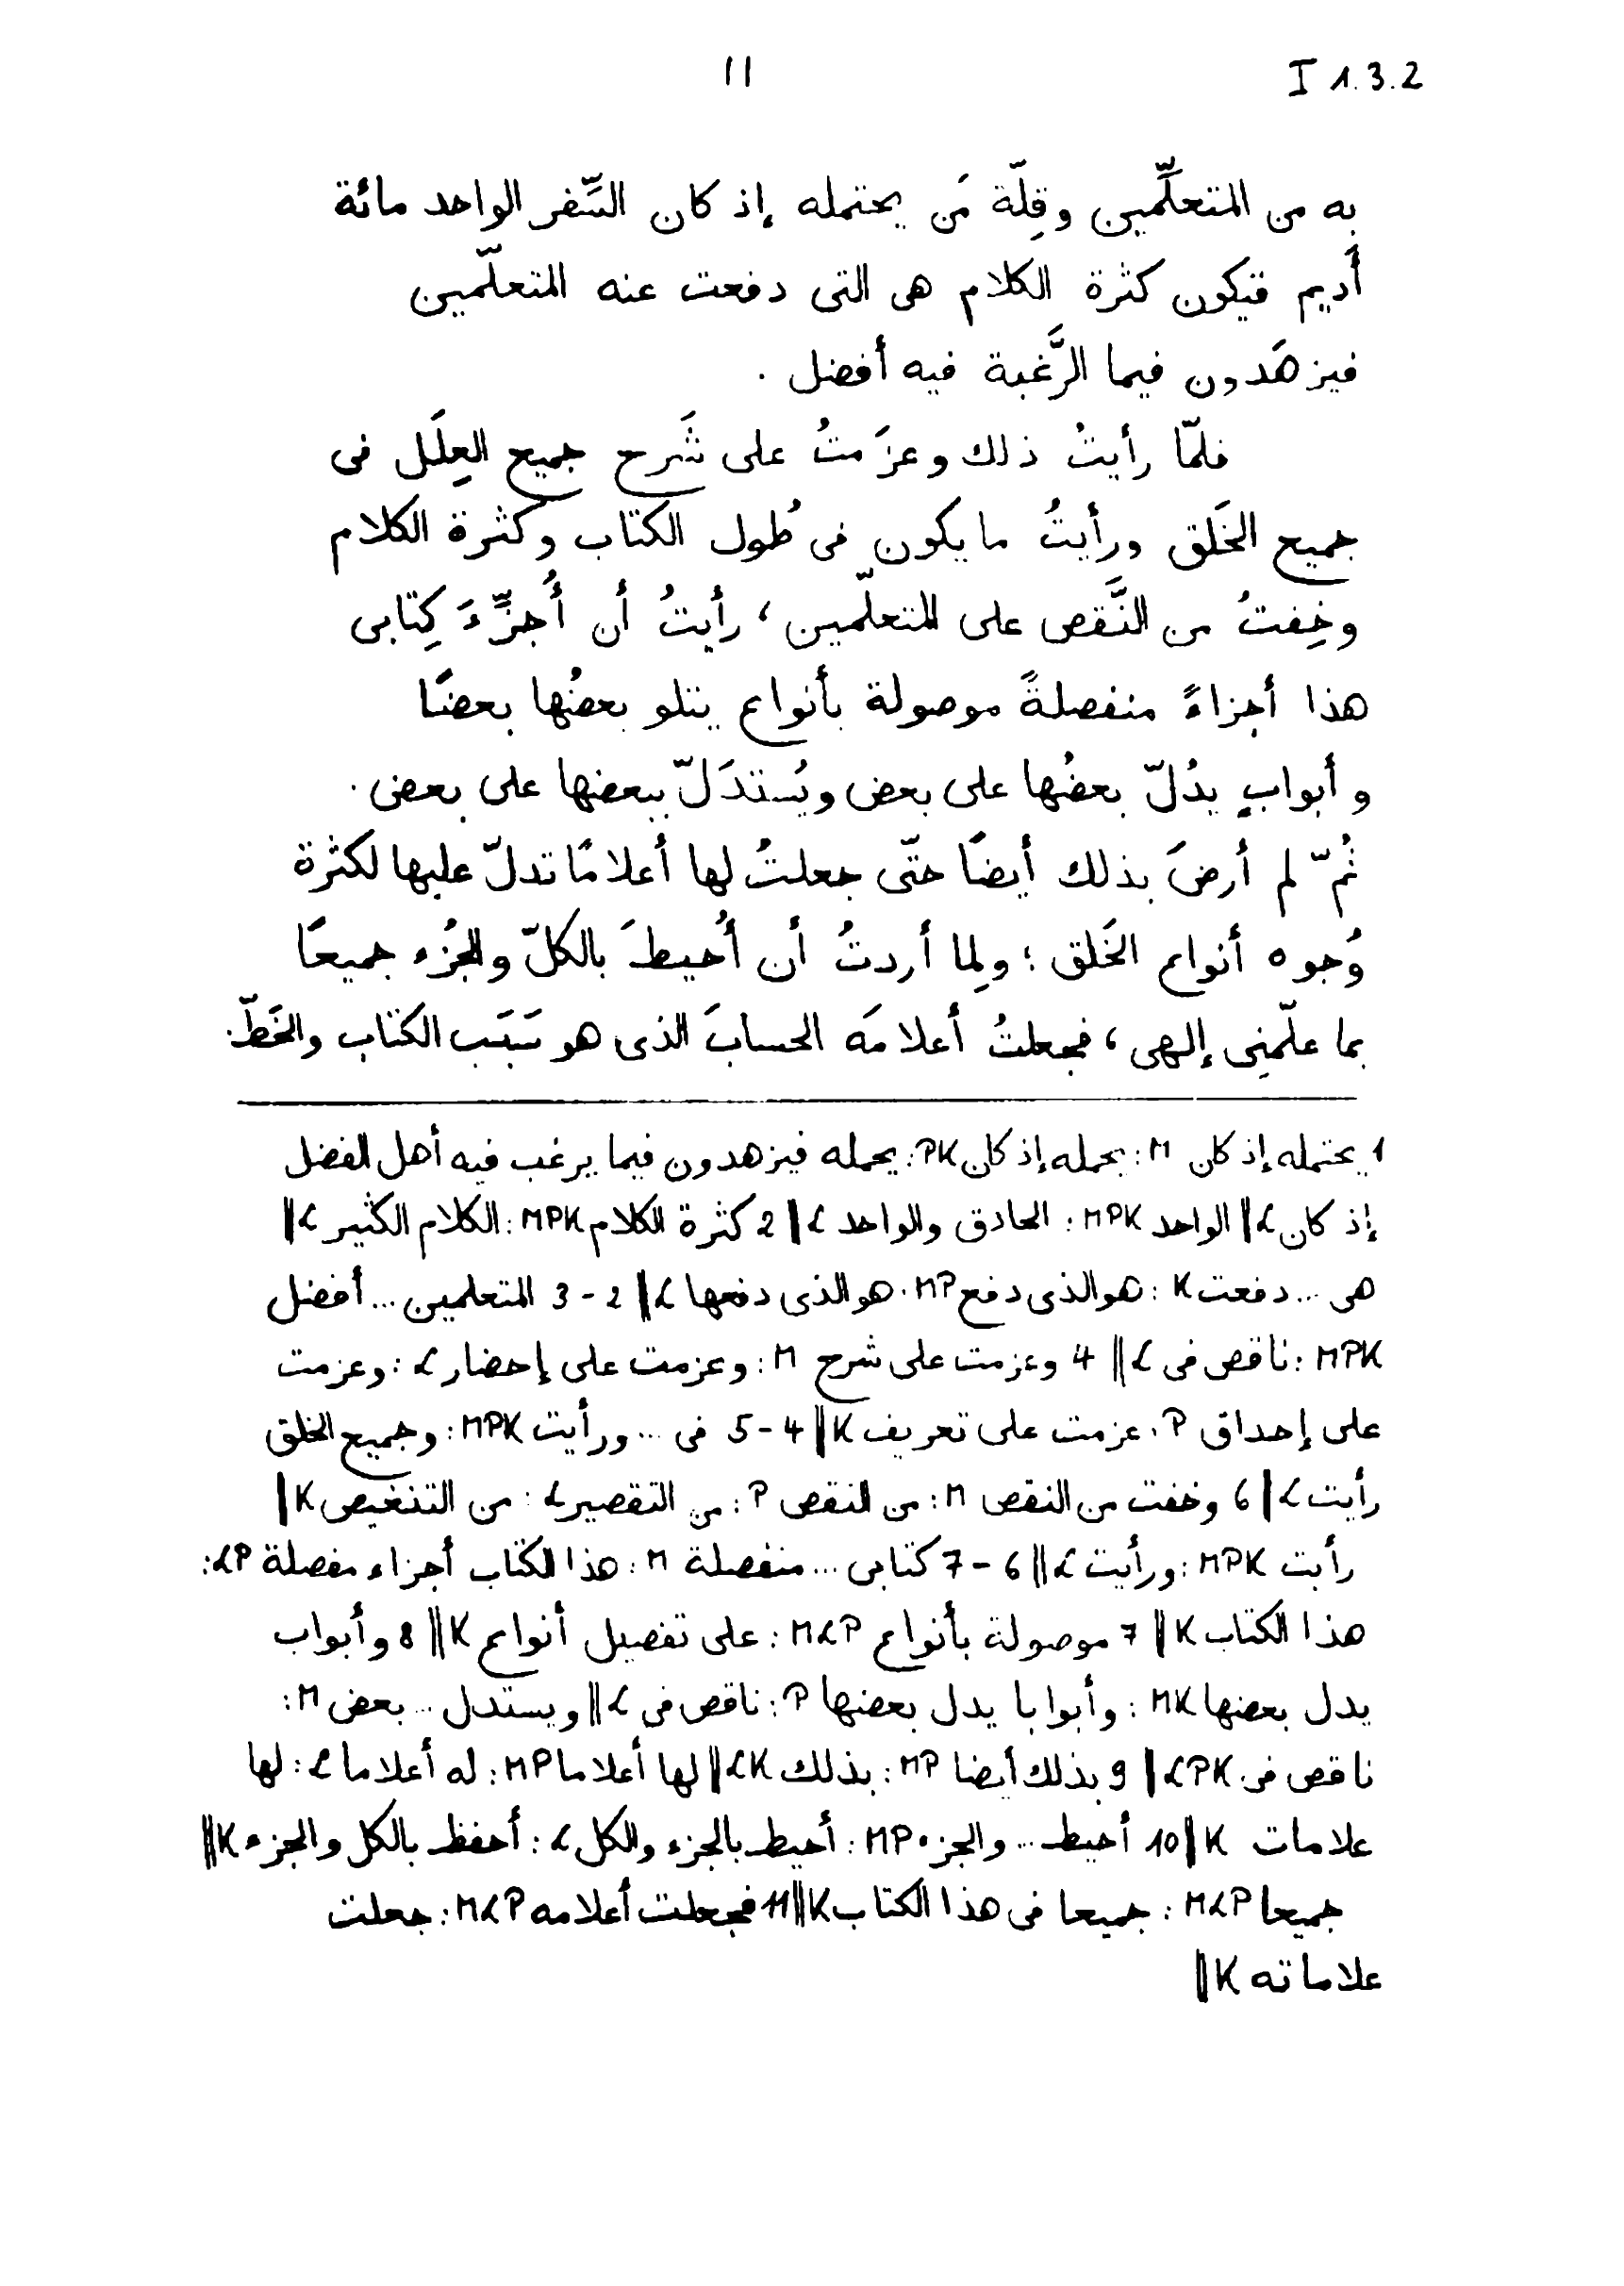 ١١ I 1.3.2
به من المتعلِّمين وقِلّة مَن يحتمله إذ كان السِّفر الواحد مائة
أَديم فتكون كثرة الكلام هى التى دفعت عنه المتعلّمين
فيزهَدون فيما الرَّغبة فيه أفضل .
فلمّا رأيتُ ذلك وعزَمتُ على شَرح جميع العِلَل فى
جميع الخَلق ورأيتُ ما يكون فى طُول الكتاب وكثرة الكلام
وخِفتُ من النَّقص على المتعلّمين، رأيتُ أن أُجزِّءَ كِتابى
هذا أجزاءً منفصلةً موصولة بأنواع يتلو بعضُها بعضًا
وأبوابٍ يدُلّ بعضُها على بعض ويُستدَلّ ببعضها على بعض.
ثُمّ لم أرضَ بذلك أيضًا حتّى جعلتُ لها أعلامًا تدلّ عليها لكثرة
وُجوه أنواع الخَلق؛ ولِما أردتُ أن أُحيطَ بالكلّ والجُزء جميعًا
بما علّمنِى إلهى، فجعلتُ أعلامَه الحسابَ الذى هو سَبَب الكتاب والخَطّ.
1 يحتمله إذ كان M: يحمله إذ كان PK: يحمله فيزهدون فيما يرغب فيه أهل الفضل
إذ كان L ‖ الواحد MPK: الحادق والواحد L ‖ 2 كثرة الكلام MPK: الكلام الكثير L ‖
هى ... دفعت K: هو الذى دفع MP: هو الذى دفعها L ‖ 2-3 المتعلمين ... أفضل
MPK: ناقص فى L ‖ 4 وعزمت على شرح M: وعزمت على إحضار L: وعزمت
على إحداق P: عزمت على تعريف K ‖ 4-5 فى ... ورأيت MPK: وجميع الخلق
رأيت L ‖ 6 وخفت من النقص M: من النقص P: من التقصير L: من التنغيص K ‖
رأيت MPK: ورأيت L ‖ 6-7 كتابى ... منفصلة M: هذا الكتاب أجزاء مفصلة LP:
هذا الكتاب K ‖ 7 موصولة بأنواع MLP: على تفصيل أنواع K ‖ 8 وأبواب
يدل بعضها MK: وأبوابا يدل بعضها P: ناقص فى L ‖ ويستدل ... بعض M:
ناقص فى LPK ‖ 9 بذلك أيضا MP: بذلك LK ‖ لها أعلاما MP: له أعلاما L: لها
علامات K ‖ 10 أحيط ... والجزء MP: أحيط بالجزء والكل L: أحفظ بالكل والجزء K ‖
جميعا MLP: جميعا فى هذا الكتاب K ‖ 11 فجعلت أعلامه MLP: جعلت
علاماته K ‖